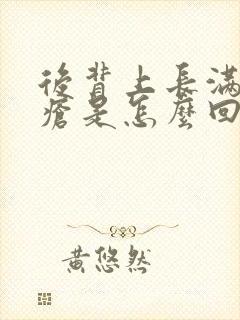 後背上長滿
瘡是怎麼回
黃悠然